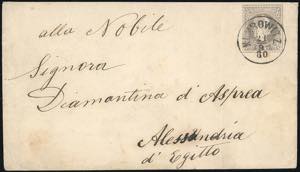 alla Nobile
Signora
Diamantina d'Asprea
Alessandria
d'Egitto